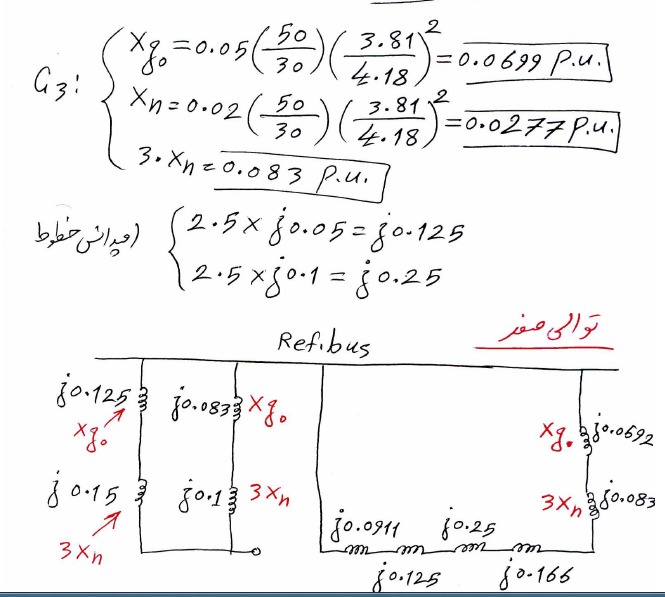 G3:
Xg0 = 0.05 (50/30) (3.81/4.18)^2 = 0.0699 P.u.
Xn = 0.02 (50/30) (3.81/4.18)^2 = 0.0277 P.u.
3.Xn = 0.083 P.u.
امپدانس خطوط
2.5 × j0.05 = j0.125
2.5 × j0.1 = j0.25
توالی صفر
Ref.bus
j0.125
Xg0
j0.083 Xg0
Xg0 j0.0692
j0.15
3Xn
j0.1 3Xn
3Xn j0.083
j0.0911 j0.25
j0.125 j0.166